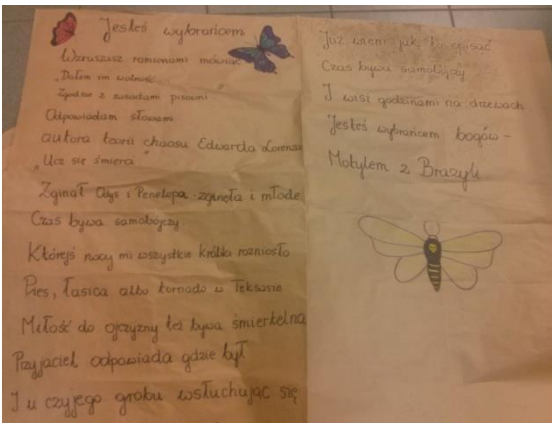 Jesteś wybrańcem
Wzruszasz ramionami mówiąc
„Dałem im wolność
Zgodnie z zasadami pisowni
Odpowiadam słowami
autora teorii chaosu Edwarda Lorenza
„Ucz się śmierci”
Zginął Odys i Penelopa - zginęła i młode
Czas bywa samobójczy
Którejś nocy mi wszystkie królika rozniosło
Pies, łasica albo tornado w Teksasie
Miłość do ojczyzny też bywa śmiertelna
Przyjaciel odpowiada gdzie był
I u czyjego grobu wsłuchując się
Już wiem jak to opisać
Czas bywa samobójczy
I wisi godzinami na drzewach
Jesteś wybrańcem bogów -
Motylem z Brazylii